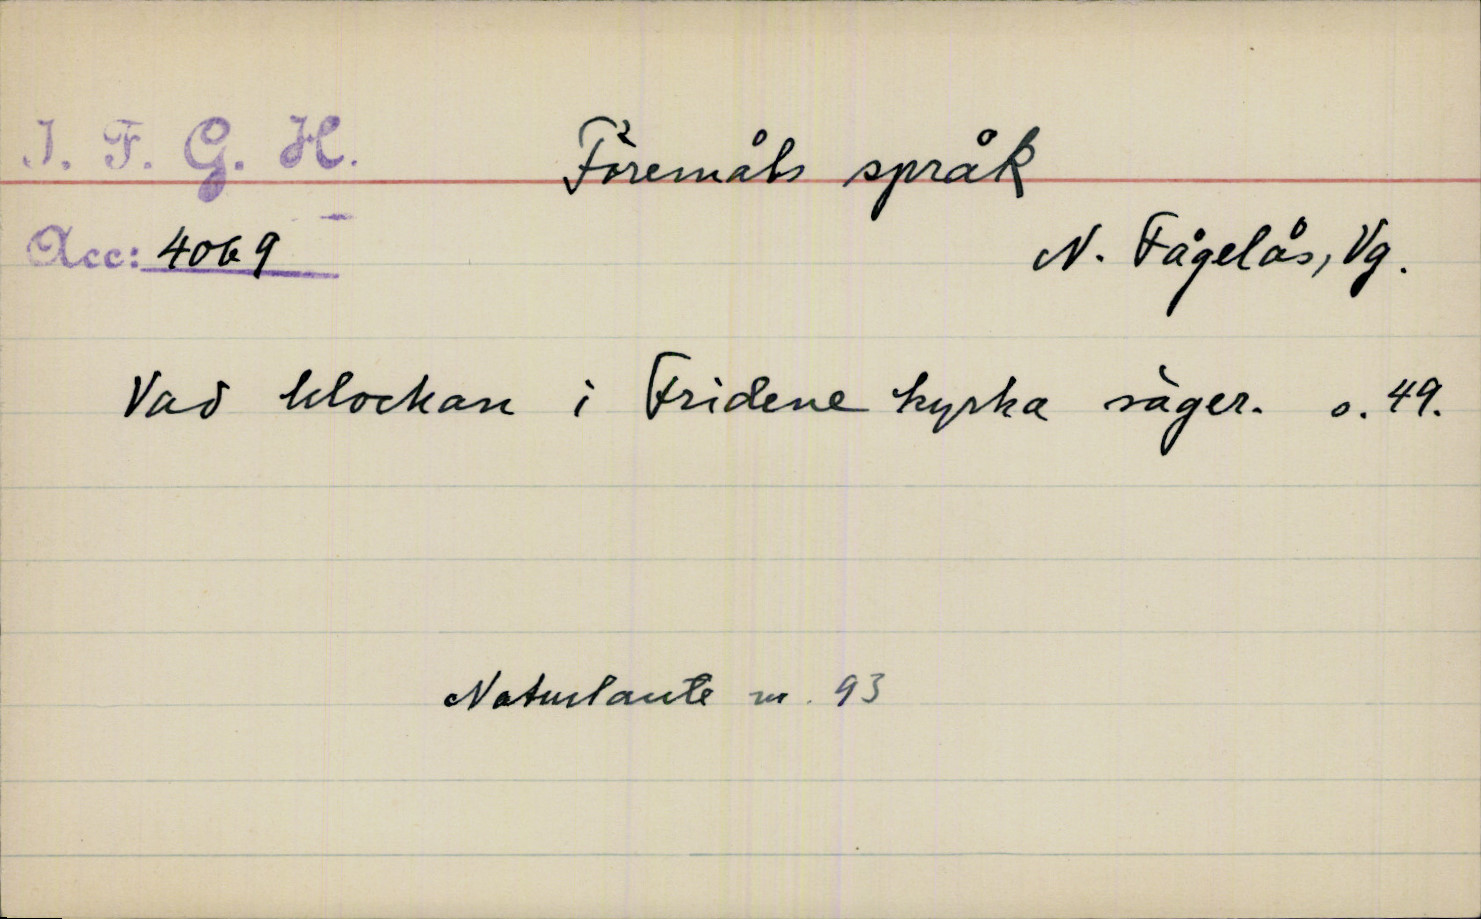 I. F. G. H.
Föremåls språk
Acc: 4069
N. Fågelås, Vg.
Vad klockan i Fridene kyrka säger. s. 49.
Naturlaute nr. 93